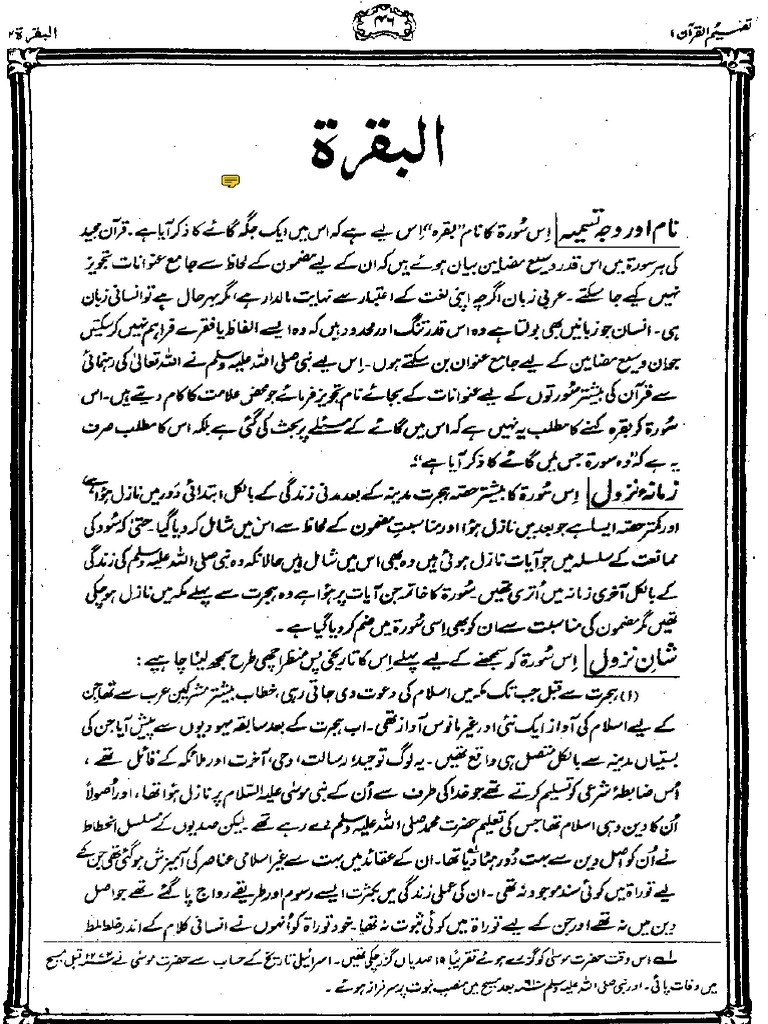 تفہیم القرآن ۱
۴۶
البقرۃ ۲
البقرۃ
نام اور وجہ تسمیہ اِس سُورۃ کا نام ”بقرہ“ اِس لیے ہے کہ اس میں ایک جگہ گائے کا ذکر آیا ہے۔ قرآن مجید
کی ہر سورۃ میں اس قدر وسیع مضامین بیان ہوئے ہیں کہ ان کے لیے مضمون کے لحاظ سے جامع عنوانات تجویز
نہیں کیے جا سکتے۔ عربی زبان اگرچہ اپنی لغت کے اعتبار سے نہایت مالدار ہے، مگر بہرحال ہے تو انسانی زبان
ہی۔ انسان جو زبانیں بھی بولتا ہے وہ اس قدر تنگ اور محدود ہیں کہ وہ ایسے الفاظ یا فقرے فراہم نہیں کر سکتیں
جو ان وسیع مضامین کے لیے جامع عنوان بن سکتے ہوں۔ اس لیے نبی صلی اللہ علیہ وسلم نے اللہ تعالیٰ کی رہنمائی
سے قرآن کی بیشتر سُورتوں کے لیے عنوانات کے بجائے نام تجویز فرمائے جو محض علامت کا کام دیتے ہیں۔ اس
سُورۃ کو بقرہ کہنے کا مطلب یہ نہیں ہے کہ اس میں گائے کے مسئلے پر بحث کی گئی ہے بلکہ اس کا مطلب صرف
یہ ہے کہ ”وہ سورۃ جس میں گائے کا ذکر آیا ہے“۔
زمانۂ نزول اِس سُورۃ کا بیشتر حصّہ ہجرت مدینہ کے بعد مدنی زندگی کے بالکل ابتدائی دَور میں نازل ہؤا ہے
اور کمتر حصّہ ایسا ہے جو بعد میں نازل ہؤا اور مناسبتِ مضمون کے لحاظ سے اس میں شامل کر دیا گیا۔ حتیٰ کہ سُود کی
ممانعت کے سلسلہ میں جو آیات نازل ہوئی ہیں وہ بھی اس میں شامل ہیں حالانکہ وہ نبی صلی اللہ علیہ وسلم کی زندگی
کے بالکل آخری زمانہ میں اُتری تھیں۔ سُورۃ کا خاتمہ جن آیات پر ہؤا ہے وہ ہجرت سے پہلے مکہ میں نازل ہو چکی
تھیں مگر مضمون کی مناسبت سے ان کو بھی اِسی سُورۃ میں ضم کر دیا گیا ہے۔
شانِ نزول اِس سُورۃ کو سمجھنے کے لیے پہلے اِس کا تاریخی پس منظر اچھی طرح سمجھ لینا چاہیے:
(۱) ہجرت سے قبل جب تک مکہ میں اسلام کی دعوت دی جاتی رہی، خطاب بیشتر مشرکینِ عرب سے تھا جن
کے لیے اسلام کی آواز ایک نئی اور غیر مانوس آواز تھی۔ اب ہجرت کے بعد سابقہ یہودیوں سے پیش آیا جن کی
بستیاں مدینہ سے بالکل متصل ہی واقع تھیں۔ یہ لوگ توحید، رسالت، وحی، آخرت اور ملائکہ کے قائل تھے،
اُس ضابطۂ شرعی کو تسلیم کرتے تھے جو خدا کی طرف سے اُن کے نبی موسیٰ علیہ السّلام پر نازل ہؤا تھا، اور اُصولاً
اُن کا دین وہی اسلام تھا جس کی تعلیم حضرت محمد صلی اللہ علیہ وسلم دے رہے تھے لیکن صدیوں کے مسلسل انحطاط
نے اُن کو اصل دین سے بہت دُور ہٹا دیا تھا۔ ان کے عقائد میں بہت سے غیر اسلامی عناصر کی آمیزش ہو گئی تھی جن کے
لیے توراۃ میں کوئی سند موجود نہ تھی۔ ان کی عملی زندگی میں بکثرت ایسے رسوم اور طریقے رواج پا گئے تھے جو اصل
دین میں نہ تھے اور جن کے لیے توراۃ میں کوئی ثبوت نہ تھا۔ خود توراۃ کو اُنہوں نے انسانی کلام کے اندر خلط ملط
لہ اس وقت حضرت موسیٰ کو گزرے ہوئے تقریباً ۱۹ صدیاں گزر چکی تھیں۔ اسرائیلی تاریخ کے حساب سے حضرت موسیٰ نے ۱۲۷۲ قبل مسیح
میں وفات پائی۔ اور نبی صلی اللہ علیہ وسلم ۶۱۰ بعد مسیح میں منصب نبوت پر سرفراز ہوئے۔